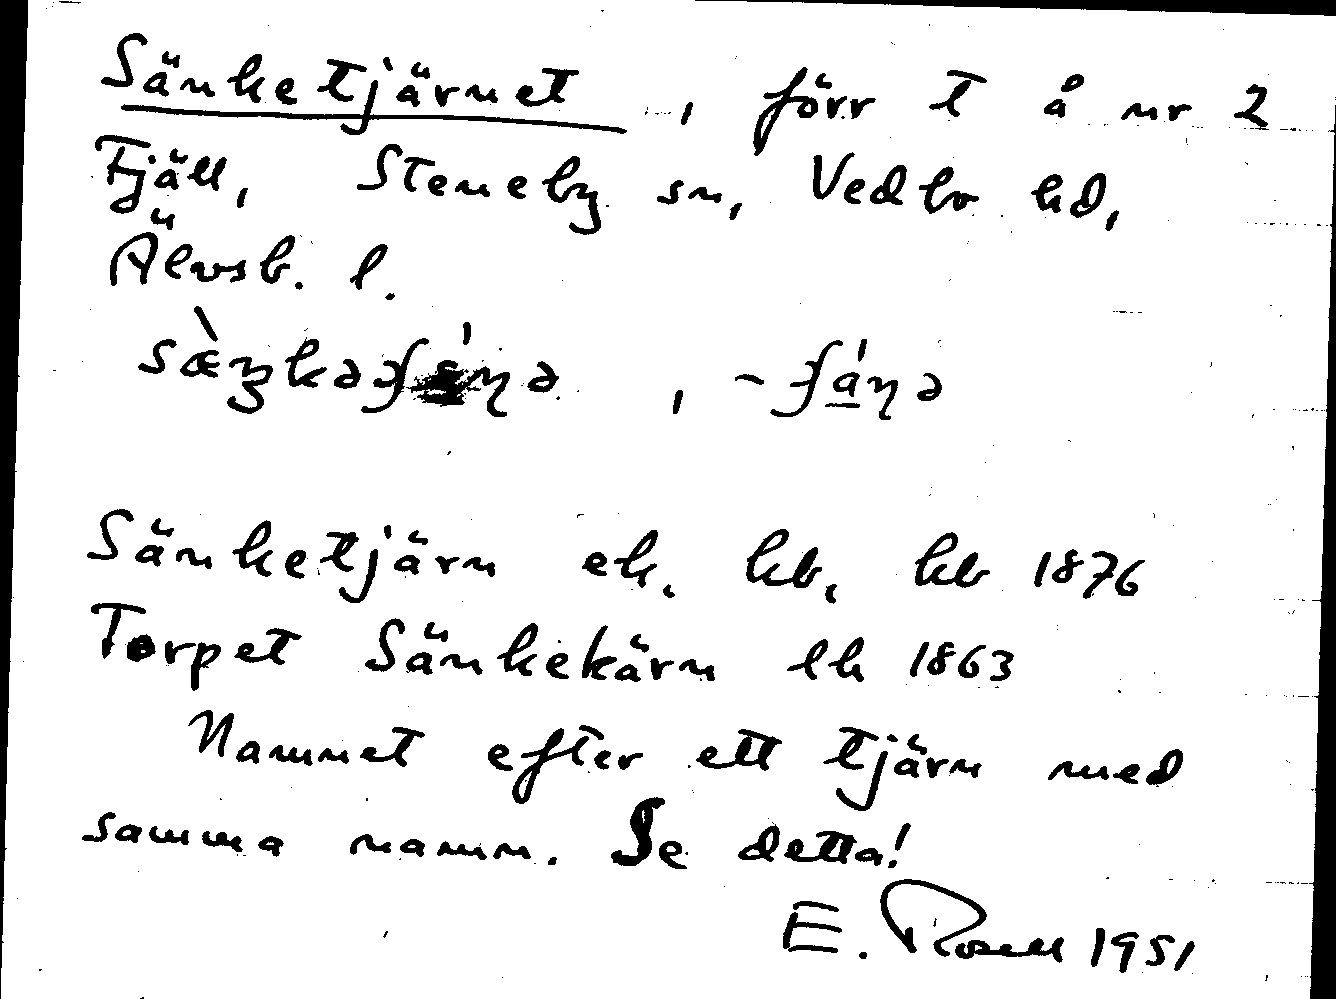 Sänketjärnet, förr t å nr 2
Fjäll, Steneby sn, Vedbo hd,
Älvsb. l.
Sänketjärn ek. kb, kb 1876
Torpet Sänkekärn lh 1863
Namnet efter ett tjärn med
samma namn. Se detta!
E. Rosell 1951